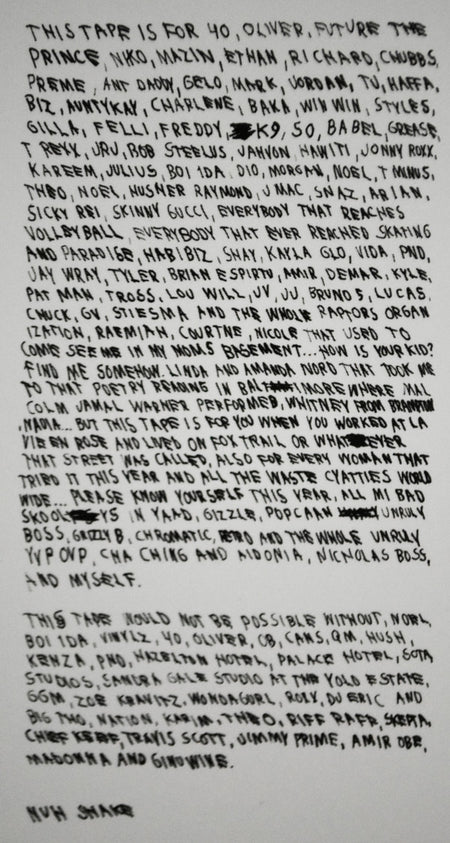 THIS TAPE IS FOR 40, OLIVER, FUTURE THE
PRINCE, NIKO, MAZIN, ETHAN, RICHARD, CHUBBS,
PREME, ANT DADDY, GELO, MARK, JORDAN, TJ, HAFFA,
BIZ, AUNTYKAY, CHARLENE, BAKA, WIN WIN, STYLES,
GILLA, FELLI, FREDDY, K9, SO, BABEL, GREASE,
T REXX, JRU, BOB STEELUS, JAHVON, HAWITI, JONNY ROXX,
KAREEM, JULIUS, BOI 1DA, DIO, MORGAN, NOEL, T MINUS,
THEO, NOEL, HUSNER RAYMOND, J MAC, SNAZ, ARIAN,
SICKY REI, SKINNY GUCCI, EVERYBODY THAT REACHES
VOLLEYBALL, EVERYBODY THAT EVER REACHED SKATING
AND PARADISE, HABIBIZ, SHAY, KAYLA GLO, VIDA, PND,
JAY WRAY, TYLER, BRIAN ESPIRTU, AMIR, DEMAR, KYLE,
PAT MAN, TROSS, LOU WILL, JV, JU, BRUNO 5, LUCAS,
CHUCK, GV, STIESMA AND THE WHOLE RAPTORS ORGAN
IZATION, RAEMIAH, COURTNE, NICOLE THAT USED TO
COME SEE ME IN MY MOMS BASEMENT... HOW IS YOUR KID?
FIND ME SOMEHOW. LINDA AND AMANDA NORD THAT TOOK ME
TO THAT POETRY READING IN BALTIMORE WHERE MAL
COLM JAMAL WARNER PERFORMED, WHITNEY FROM BRAMPTON
, NADIA... BUT THIS TAPE IS FOR YOU WHEN YOU WORKED AT LA
VIE EN ROSE AND LIVED ON FOXTRAIL OR WHATEVER
THAT STREET WAS CALLED, ALSO FOR EVERY WOMAN THAT
TRIED IT THIS YEAR AND ALL THE WASTE CYATTIES WORLD
WIDE... PLEASE KNOW YOURSELF THIS YEAR, ALL MI BAD
SKOOL YS IN YAAD, GIZZLE, POPCAAN UNRULY
BOSS, GRIZZY B, CHROMATIC, RETRO AND THE WHOLE UNRULY
YVP OVP, CHA CHING AND AIDONIA, NICHOLAS BOSS,
AND MYSELF.
THIS TAPE WOULD NOT BE POSSIBLE WITHOUT, NOEL,
BOI 1DA, VINYLZ, 40, OLIVER, CB, CANS, QM, HUSH,
KENZA, PND, HAZELTON HOTEL, PALACE HOTEL, SOTA
STUDIOS, SANDRA GALE STUDIO AT THE YOLO ESTATE,
GGM, ZOE KRAVITZ, WONDAGURL, ROXY, DJ ERIC AND
BIG THO, NATION, KARIM, THEO, RIFF RAFF, SKEPTA,
CHIEF KEEF, TRAVIS SCOTT, JIMMY PRIME, AMIR OBE,
MADONNA AND GINUWINE.
NUH SHAKE